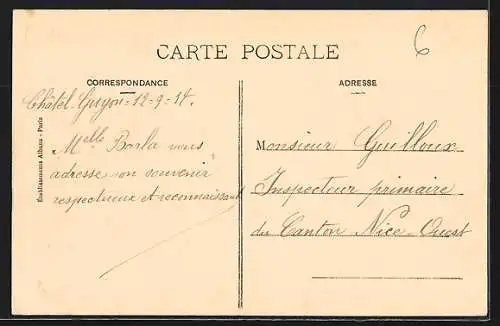 CARTE POSTALE
6
CORRESPONDANCE
ADRESSE
Châtel-Guyon=12-9-14.
Melle Borla vous
adresse son souvenir
respectueux et reconnaissant
Monsieur Guilloux
Inspecteur primaire
du Canton Nice-Ouest
Etablissements Albana - Paris